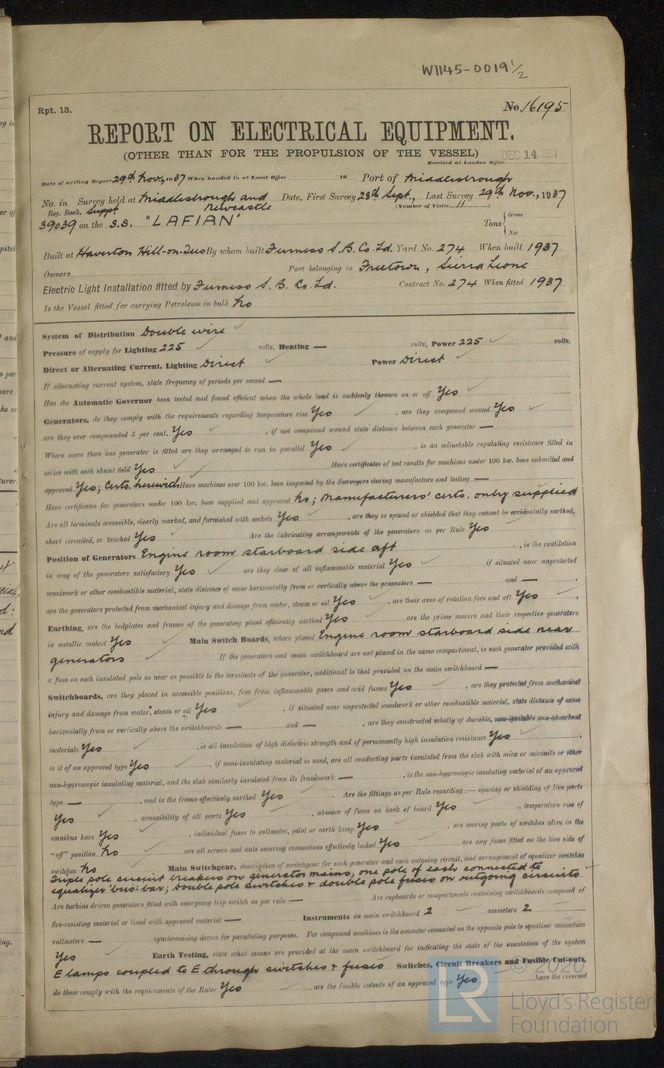 W1145-0019 1/2
Rpt. 13.
No. 16195
REPORT ON ELECTRICAL EQUIPMENT.
(OTHER THAN FOR THE PROPULSION OF THE VESSEL)
Received at London Office
DEC 14
Date of writing Report 29th Nov, 1937 When handed in at Local Office 19 Port of Middlesbrough
No. in Survey held at Middlesbrough and Newcastle Date, First Survey 28th Sept., Last Survey 29th Nov., 1937
Reg. Book. Suppt (Number of Visits 11)
39039 on the S.S. "LAFIAN" Tons { Gross Net
Built at Haverton Hill-on-Tees By whom built Furness S.B. Co. Ld. Yard No. 274 When built 1937
Owners Port belonging to Freetown, Sierra Leone
Electric Light Installation fitted by Furness S.B. Co. Ld. Contract No. 274 When fitted 1937
Is the Vessel fitted for carrying Petroleum in bulk No
System of Distribution Double wire
Pressure of supply for Lighting 225 volts, Heating — volts, Power 225 volts.
Direct or Alternating Current, Lighting Direct Power Direct
If alternating current system, state frequency of periods per second —
Has the Automatic Governor been tested and found efficient when the whole load is suddenly thrown on or off Yes
Generators, do they comply with the requirements regarding temperature rise Yes, are they compound wound Yes
are they over compounded 5 per cent. Yes, if not compound wound state distance between each generator —
Where more than one generator is fitted are they arranged to run in parallel Yes, is an adjustable regulating resistance fitted in
series with each shunt field Yes Have certificates of test results for machines over 100 kw. been submitted and
approved Yes; Certs. herewith Have machines over 100 kw. been inspected by the Surveyors during manufacture and testing —
Have certificates for generators under 100 kw. been supplied and approved No; Manufacturers' certs. only supplied
Are all terminals accessible, clearly marked, and furnished with sockets Yes, are they so spaced or shielded that they cannot be accidentally earthed,
short circuited, or touched Yes Are the lubricating arrangements of the generators as per Rule Yes
Position of Generators Engine room starboard side aft, is the ventilation
in way of the generators satisfactory Yes are they clear of all inflammable material Yes if situated near unprotected
woodwork or other combustible material, state distance of same horizontally from or vertically above the generators — and —,
are the generators protected from mechanical injury and damage from water, steam or oil Yes, are their axes of rotation fore and aft Yes,
Earthing, are the bedplates and frames of the generating plant efficiently earthed Yes are the prime movers and their respective generators
in metallic contact Yes Main Switch Boards, where placed Engine room starboard side near
generators If the generators and main switchboard are not placed in the same compartment, is each generator provided with
a fuse on each insulated pole as near as possible to the terminals of the generator, additional to that provided on the main switchboard —
Switchboards, are they placed in accessible positions, free from inflammable gases and acid fumes Yes, are they protected from mechanical
injury and damage from water, steam or oil Yes, if situated near unprotected woodwork or other combustible material, state distance of same
horizontally from or vertically above the switchboards — and —, are they constructed wholly of durable, non-ignitable non-absorbent
materials Yes, is all insulation of high dielectric strength and of permanently high insulation resistance Yes,
is it of an approved type Yes, if semi-insulating material is used, are all conducting parts insulated from the slab with mica or micanite or other
non-hygroscopic insulating material, and the slab similarly insulated from its framework —, is the non-hygroscopic insulating material of an approved
type —, and is the frame effectively earthed Yes Are the fittings as per Rule regarding:— spacing or shielding of live parts
Yes, accessibility of all parts Yes, absence of fuses on back of board Yes, temperature rise of
omnibus bars Yes, individual fuses to voltmeter, pilot or earth lamp Yes, are moving parts of switches alive in the
"off" position No are all screws and nuts securing connections effectively locked Yes are any fuses fitted on the live side of
switches No Main Switchgear, description of switchgear for each generator and each outgoing circuit, and arrangement of equalizer switches
Triple pole circuit breakers on generator mains, one pole of each connected to
equalizer 'bus: bar; Double pole switches + double pole fuses on outgoing circuits
Are turbine driven generators fitted with emergency trip switch as per rule — Are cupboards or compartments containing switchboards composed of
fire-resisting material or lined with approved material — Instruments on main switchboard 2 ammeters 2
voltmeters — synchronising device for paralleling purposes. For compound machines is the ammeter connected on the opposite pole to equaliser connection
Yes Earth Testing, state what means are provided at the main switchboard for indicating the state of the insulation of the system
E lamps coupled to E through switches + fuses Switches, Circuit Breakers and Fusible Cut-outs,
do these comply with the requirements of the Rules Yes, are the fusible cutouts of an approved type Yes, have the reversed
© 2020
LR
Lloyd's Register
Foundation